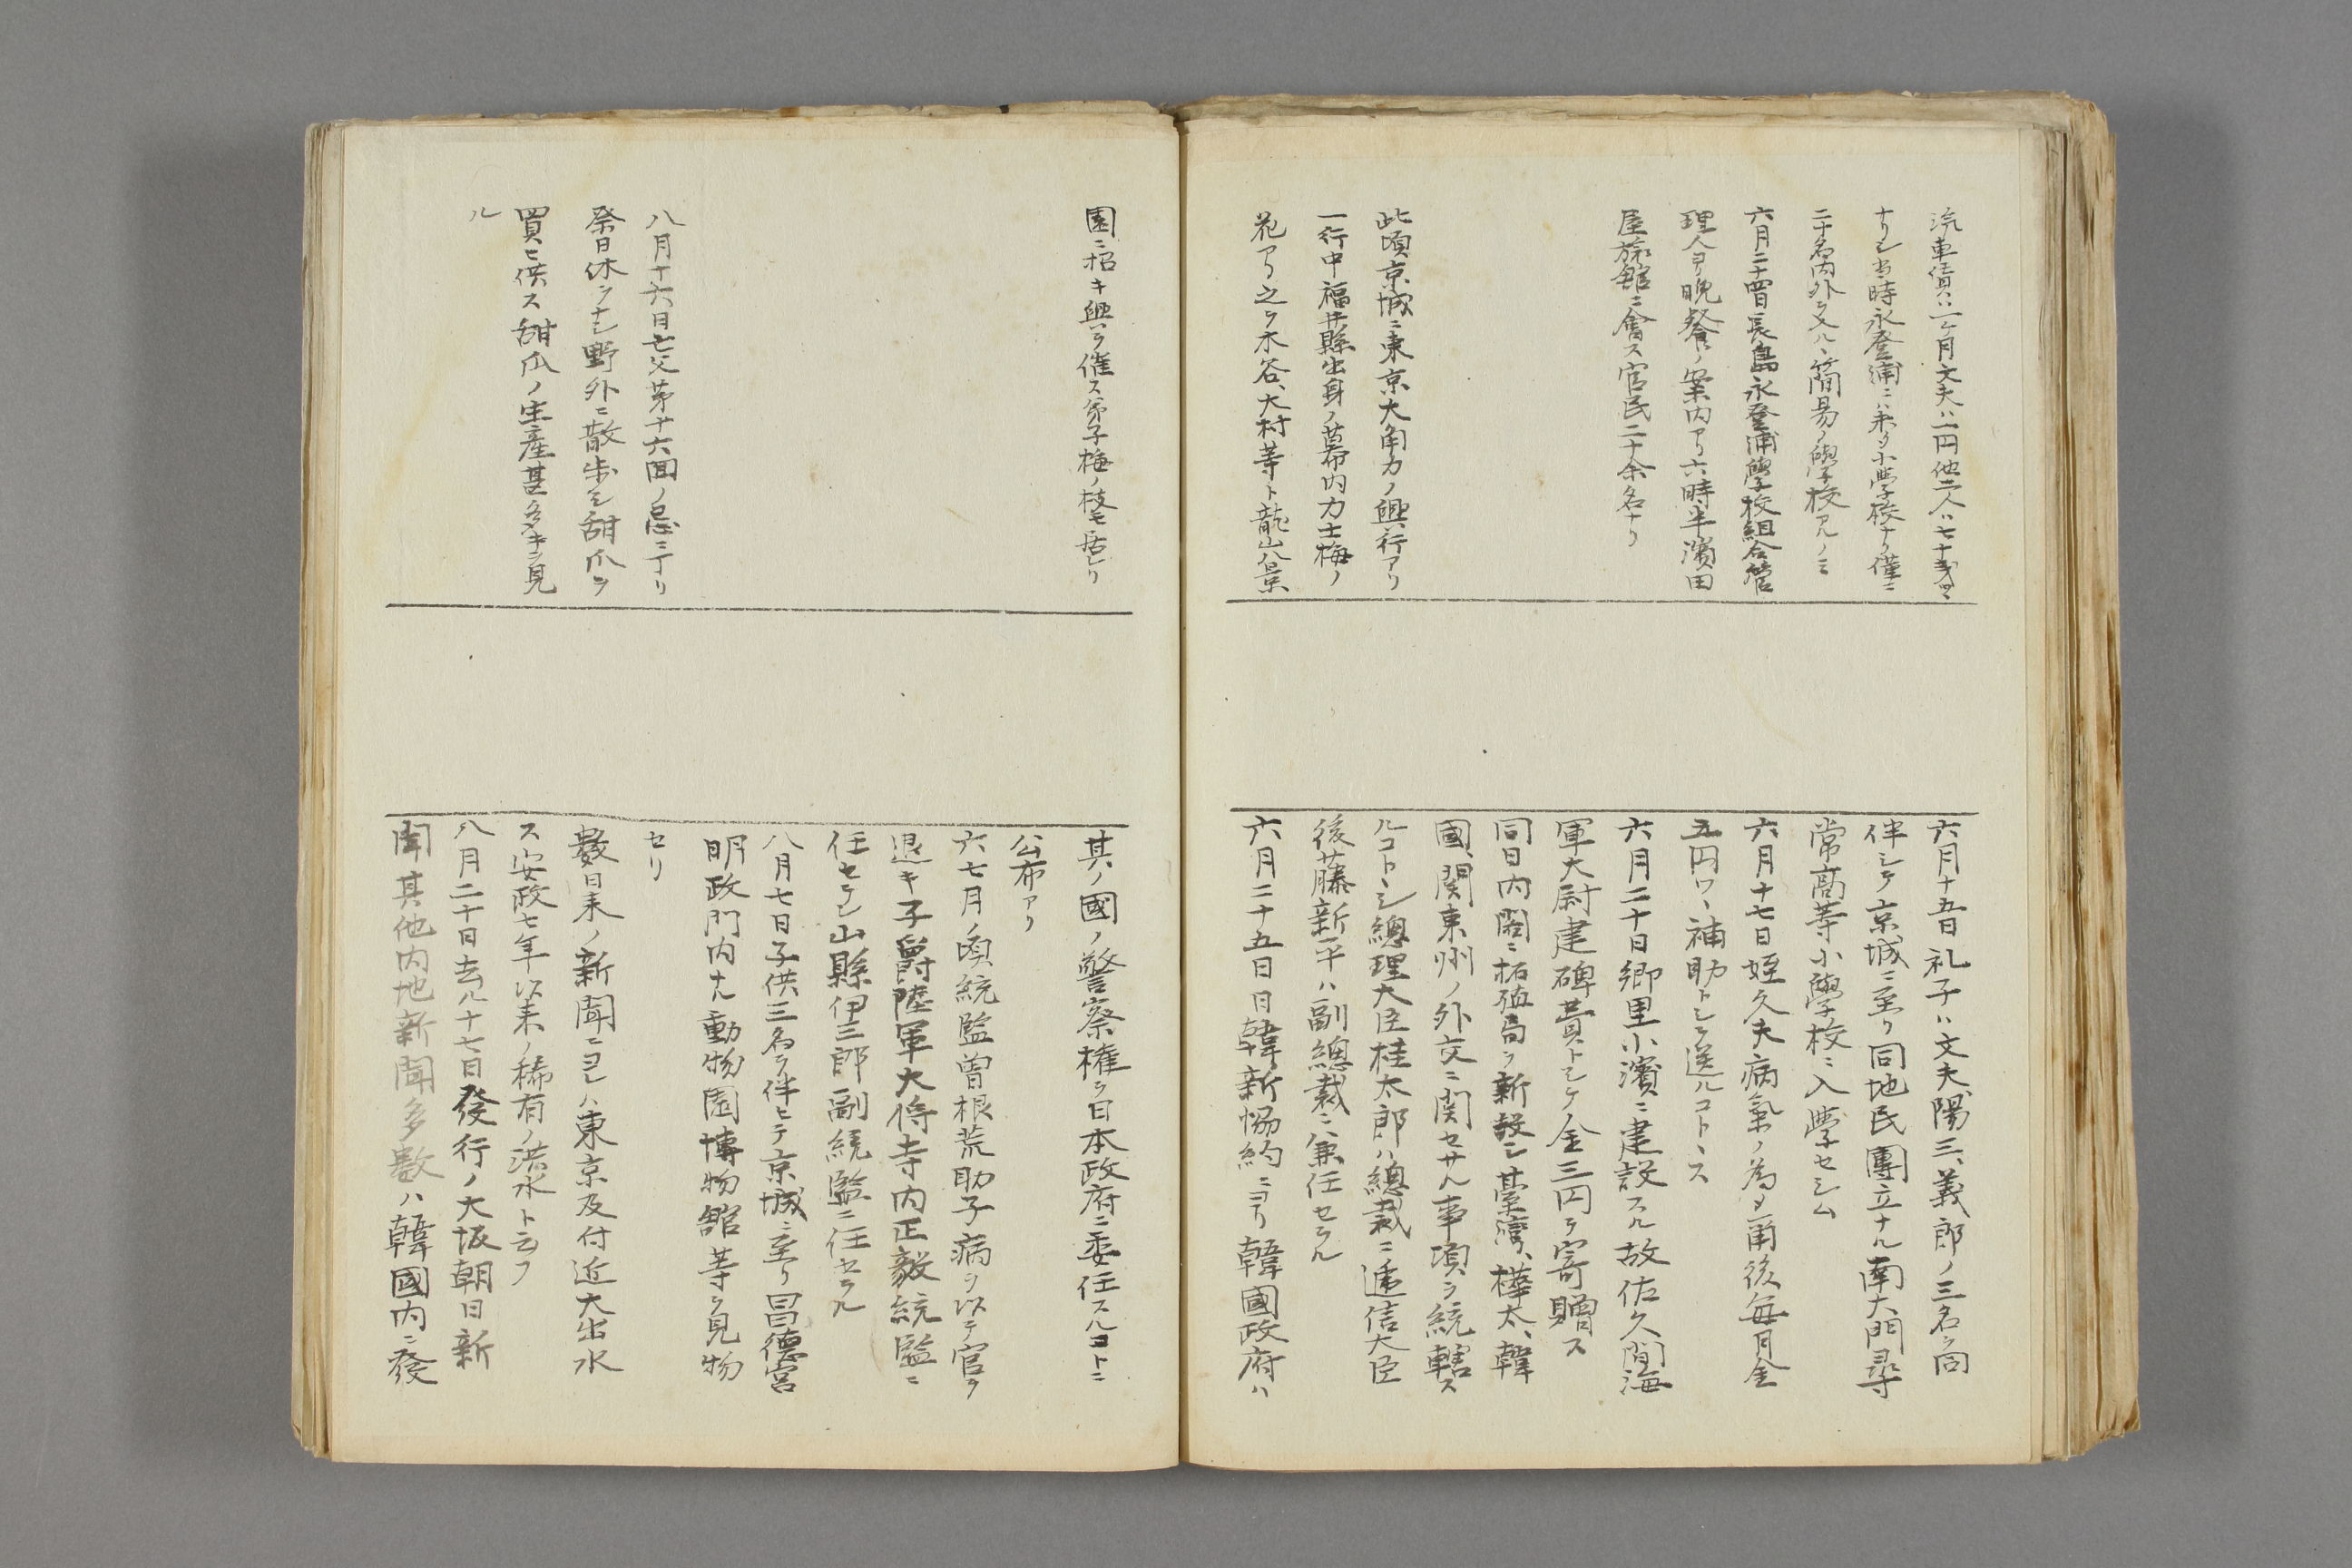 汽車賃ハ一ヶ月文夫ハ一円他二人ハ七十五戋
ナリシ当時永登浦ニハ未タ小学校ナク僅ニ
二十名内外ヲ又ハヽ簡易ノ學校アルノミ
六月二十四日長島永登浦學校組合管
理人ヨリ晩餐ノ案内アリ六時半濱田
屋旅館ニ會ス官民二十余名ナリ
此頃京城ニ東京大角力ノ興行アリ
一行中福井縣出身ノ幕内力士梅ノ
花アリ之ヲ水谷、大村等ト龍山八景
六月十五日礼子ハ文夫、陽三、義郎ノ三名ヲ同
伴シテ京城ニ至リ同地民團立ナル南大門尋
常高等小學校ニ入學セシム
六月十七日姪久夫病氣ノ為メ爾後毎月金
五円ワヽ補助トシテ送ルコトヽス
六月二十日郷里小濱ニ建設スル故佐久間海
軍大尉建碑費トシテ金三円ヲ寄贈ス
同日内閣ニ拓殖局ヲ新設シ臺灣、樺太、韓
國、関東州ノ外交ニ関セサル事項ヲ統轄ス
ルコトヽシ總理大臣桂太郎ハ總裁ニ逓信大臣
後藤新平ハ副總裁ニ兼任セラル
六月二十五日日韓新協約ニヨリ韓國政府ハ
園ニ招キ興ヲ催ス弟子梅ノ枝モ居レリ
八月十六日亡父第廿六回ノ忌ニ丁リ
祭日休ヲナシ野外ニ散歩シ甜瓜ヲ
買ヒ供ス甜瓜ノ生産甚多キヲ見
ル
其ノ國ノ警察権ヲ日本政府ニ委任スルコトニ
公布アリ
六七月ノ頃統監曽根荒助子病ヲ以テ官ヲ
退キ子爵陸軍大将寺内正毅統監ニ
任セラレ山縣伊三郎副統監ニ任セラル
八月七日子供三名ヲ伴ヒテ京城ニ至リ昌德宮
明政門内ナル動物園博物舘等ヲ見物
セリ
數日来ノ新聞ニヨレハ東京及付近大出水
ス安政七年以来ノ稀有ノ洪水ト云フ
八月二十日去ル十七日發行ノ大坂朝日新
聞其他内地新聞多數ハ韓國内ニ發